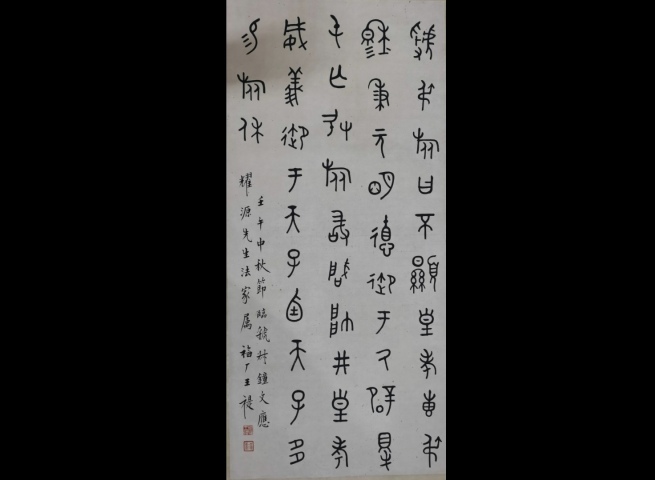 虢叔旅曰不顯皇考叀叔
穆秉元明德御于氒辟㝵
屯亡敃旅敢啟帥井皇考
威義御于天子卣天子多
易旅休
壬午中秋節臨虢叔鐘文應
耀源先生法家屬 福厂王禔